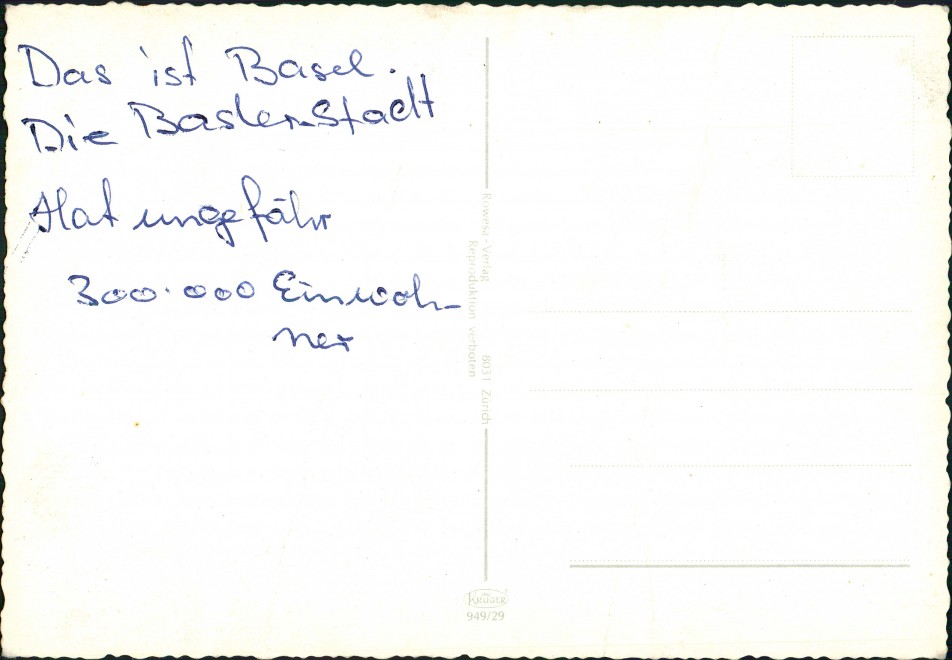 Das ist Basel.
Die Basler-Stadt
Hat ungefähr
300.000 Einwoh-
ner
Rewesa-Verlag 8031 Zürich
Reproduktion verboten
KRÜGER
949/29